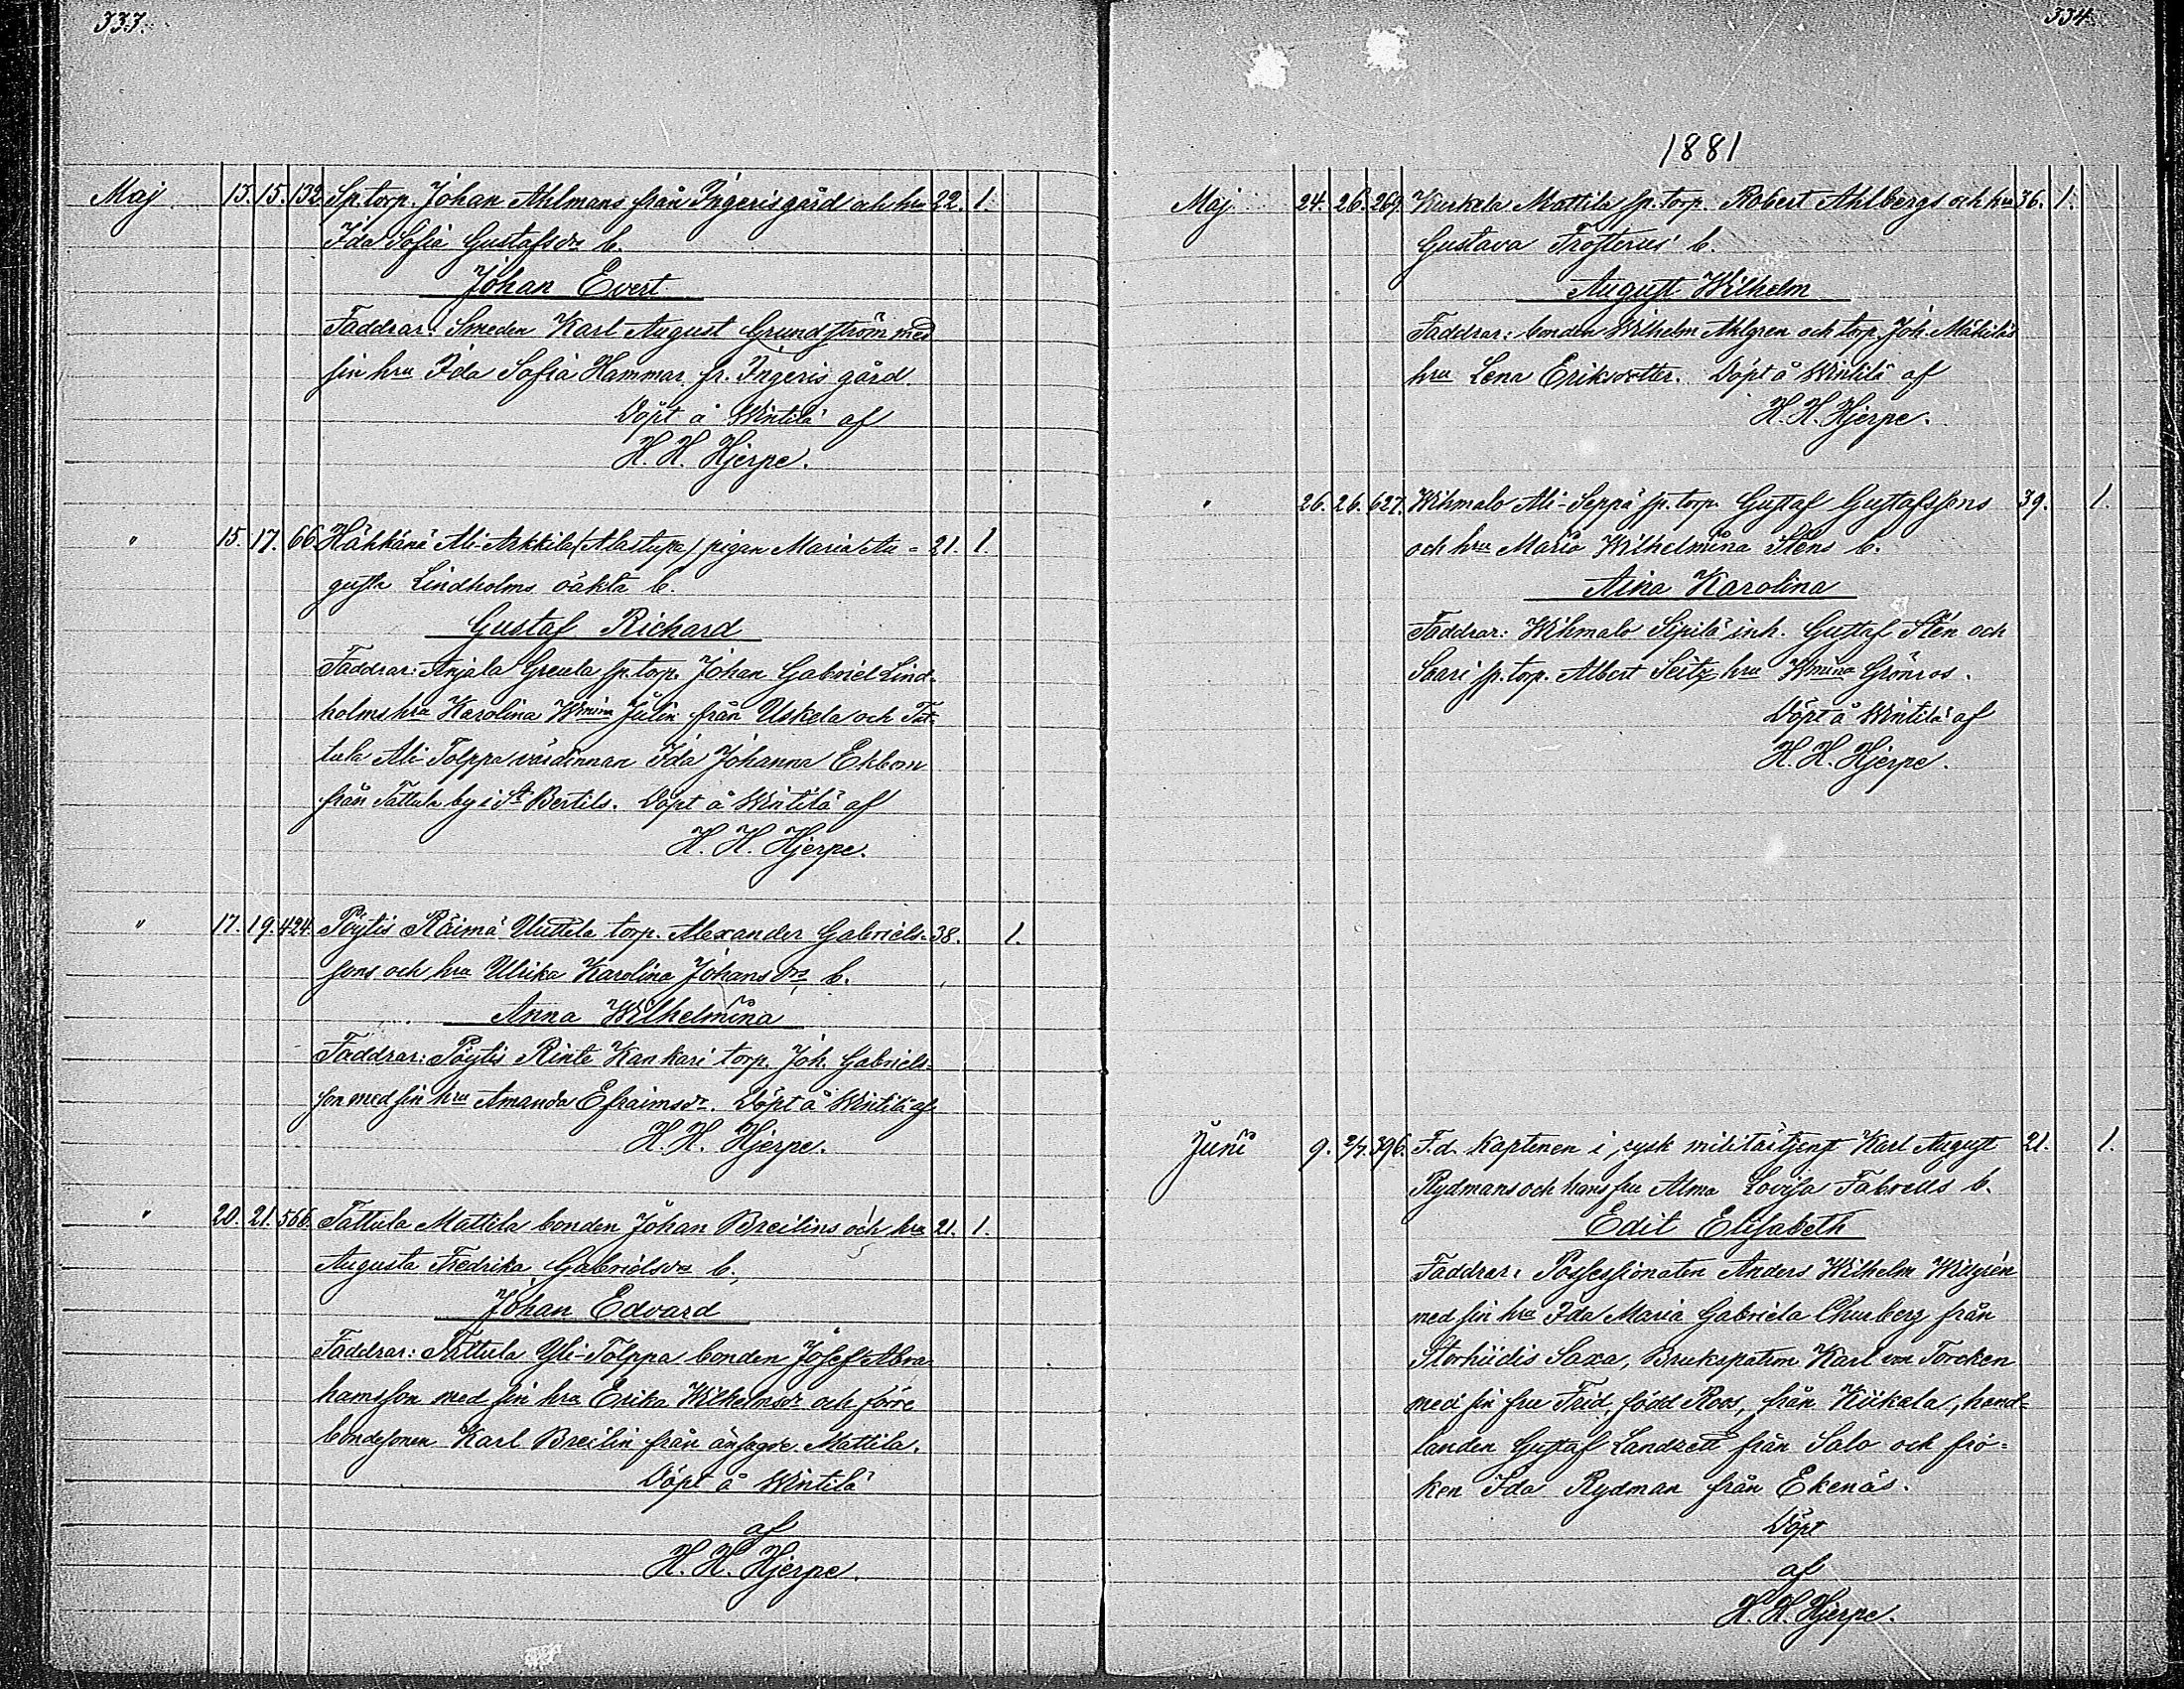 333.
Maj 13. 15. 132. Sp. torp. Johan Ahlmans från Ingeris gård och hru 22. 1.
Ida Sofia Gustafsdrs b.
Johan Evert
Faddrar: Smeden Karl August Grundström med
sin hru Ida Sofia Hammar fr. Ingeris gård.
Döpt å Wintilä af
H. H. Hjerpe.
" 15. 17. 66. Hähkänä Ali-Arkkila (Alastupa) pigan Maria Au= 21. 1.
gusta Lindholms oäkta b.
Gustaf Richard
Faddrar: Anjala Greula sp. torp. Johan Gabriel Lind-
holms hru Karolina Wmina Julin från Uskela och Tat-
tula Ali-Tolppa värdinnan Ida Johanna Ekbom
från Tattula by i St Bertils. Döpt å Wintilä af
H. H. Hjerpe.
" 17. 19. 424. Pöytis Räimä Uutela torp. Alexander Gabriels- 38. 1.
sons och hru Ulrika Karolina Johansdrs b.
Anna Wilhelmina
Faddrar: Pöytis Rinte Kankari torp. Joh. Gabriels-
son med sin hru Amanda Efraimsdr. Döpt å Wintilä af
H. H. Hjerpe.
" 20. 21. 566. Tattula Mattila bonden Johan Breilins och hru 21. 1.
Augusta Fredrika Gabrielsdrs b.
Johan Edvard
Faddrar: Tattula Yli-Tolppa bonden Josef Abra-
hamsson med sin hru Erika Wilhelmsdr och förre
bondesonen Karl Breilin från ansagde Mattila.
Döpt å Wintilä
af
H. H. Hjerpe.
334.
1881
Maj 24. 26. 269. Kurkela Mattila sp. torp. Robert Ahlbergs och hru 36. 1.
Gustava Trofterus' b.
August Wilhelm
Faddrar: bonden Wilhelm Ahlgren och torp. Joh. Mäkiläs
hru Lena Eriksdotter. Döpt å Wintilä af
H. H. Hjerpe.
" 26. 26. 627. Wihmalo Ali-Seppä sp. torp. Gustaf Gustafssons 39. 1.
och hru Maria Wilhelmina Stens b.
Aina Karolina
Faddrar: Wihmalo Sipilä inh. Gustaf Sten och
Saari sp. torp. Albert Seitz hru Wmina Grönros.
Döpt å Wintilä af
H. H. Hjerpe.
Juni 9. 2/7. 396. F.d. Kaptenen i rysk militärtjenst Karl August 21. 1.
Rydmans och hans fru Alma Lovisa b.
Edit Elisabeth
Faddrar: Possessionaten Anders Wilhelm Wilgrén
med sin hru Ida Maria Gabriela Churberg från
Storhiidis Saxa, Brukspatron Karl von Torcken
med sin fru född Roos, från Kiikala, hand=
landen Gustaf Landzett från Salo och frö=
ken Ida Rydman från Ekenäs.
Döpt
af
H. H. Hjerpe.